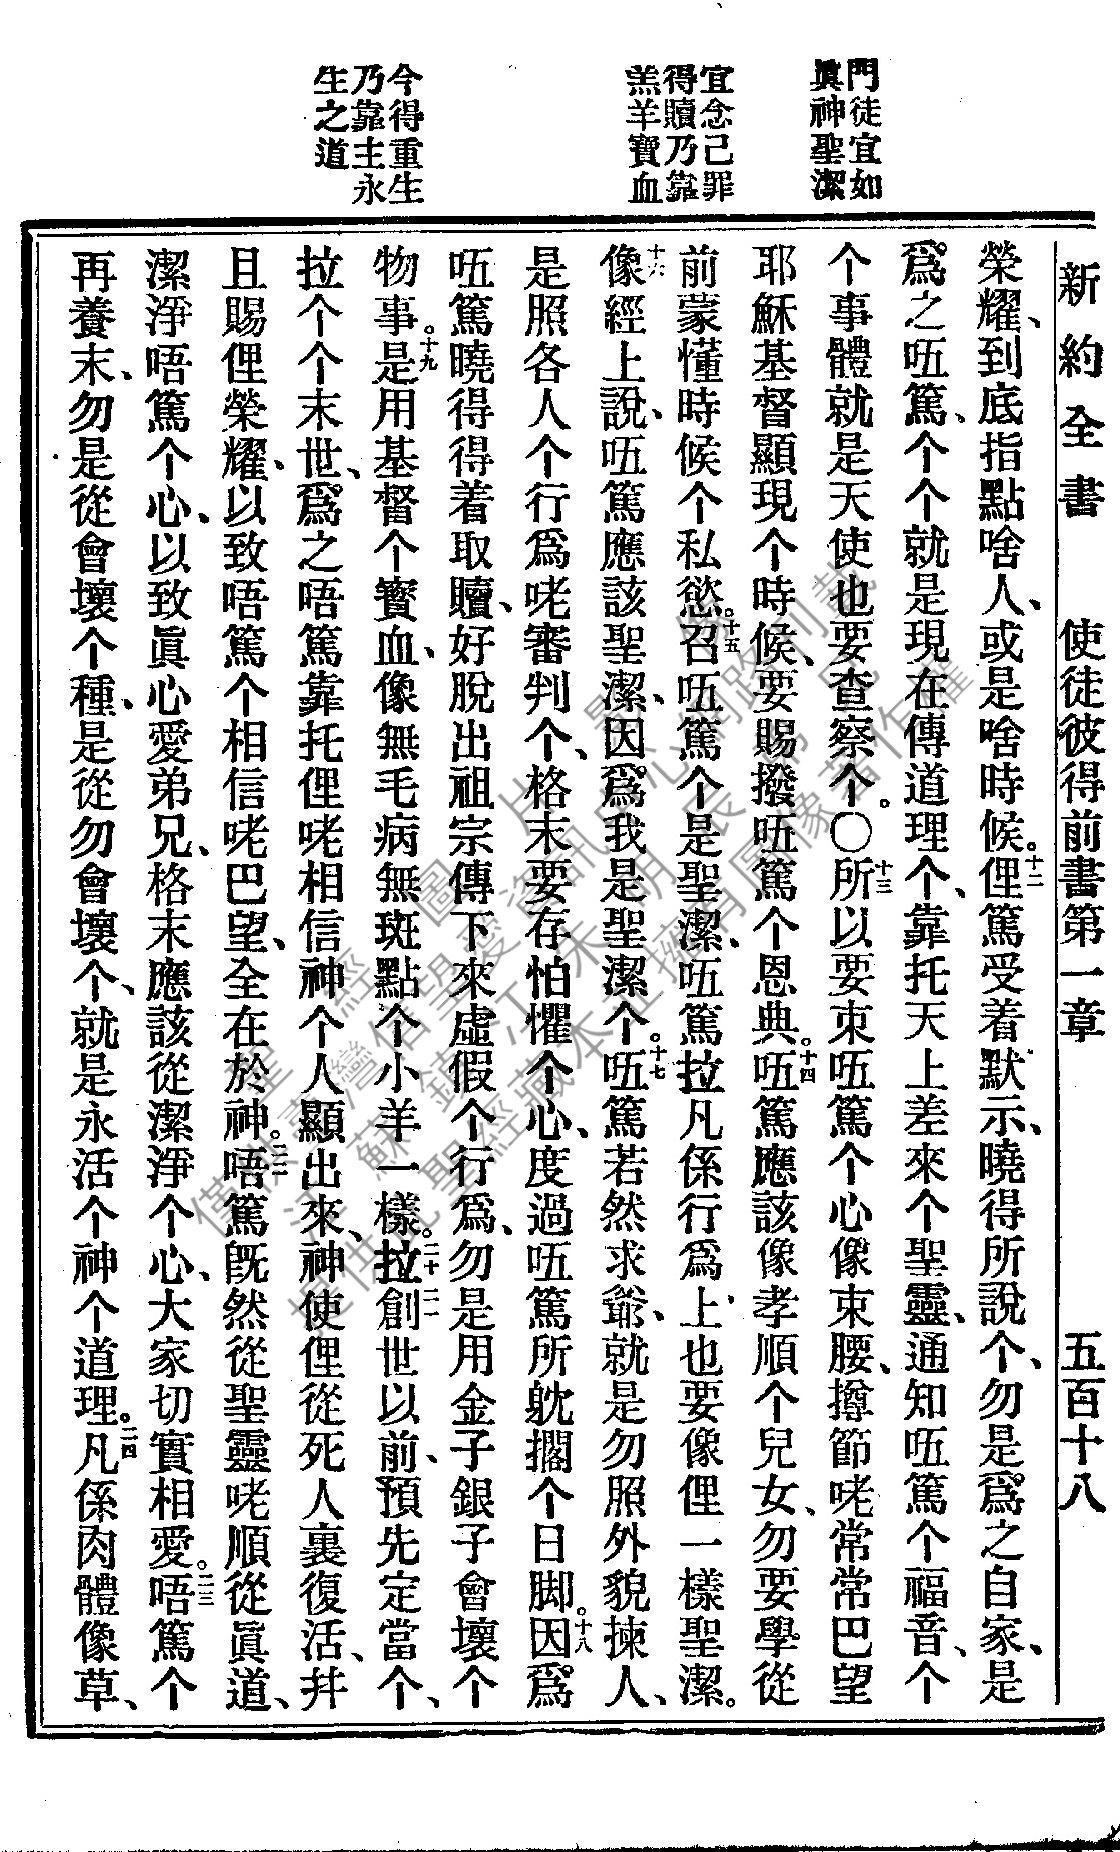 新約全書 使徒彼得前書第一章 五百十八
門徒宜如
眞神聖潔
宜念己罪
得贖乃靠
羔羊寶血
今得重生
乃靠主永
生之道
榮耀、到底指點啥人、或是啥時候。十二俚篤受着默示、曉得所說个、勿是爲之自家、是
爲之𠰻篤、个个就是現在傳道理个、靠托天上差來个聖靈、通知𠰻篤个福音、个
个事體就是天使也要查察个。〇十三所以要束𠰻篤个心像束腰、撙節咾常常巴望
耶穌基督顯現个時候、要賜撥𠰻篤个恩典。十四𠰻篤應該像孝順个兒女、勿要學從
前蒙懂時候个私慾。十五召𠰻篤个是聖潔、𠰻篤拉凡係行爲上、也要像俚一樣聖潔。
十六像經上說、𠰻篤應該聖潔、因爲我是聖潔个。十七𠰻篤若然求爺、就是勿照外貌揀人、
是照各人个行爲咾審判个、格末要存怕懼个心、度過𠰻篤所躭擱个日脚。十八因爲
𠰻篤曉得得着取贖、好脫出祖宗傳下來虛假个行爲、勿是用金子銀子會壞个
物事。十九是用基督个寳血、像無毛病無斑點个小羊一樣。二十拉創世以前、預先定當个、
拉个个末世、爲之唔篤靠托俚咾相信神个人顯出來、二一神使俚從死人裏復活、幷
且賜俚榮耀、以致唔篤个相信咾巴望、全在於神。二二唔篤旣然從聖靈咾順從眞道、
潔淨唔篤个心、以致眞心愛弟兄、格末應該從潔淨个心、大家切實相愛。二三唔篤个
再養末、勿是從會壞个種、是從勿會壞个、就是永活个神个道理。二四凡係肉體像草、